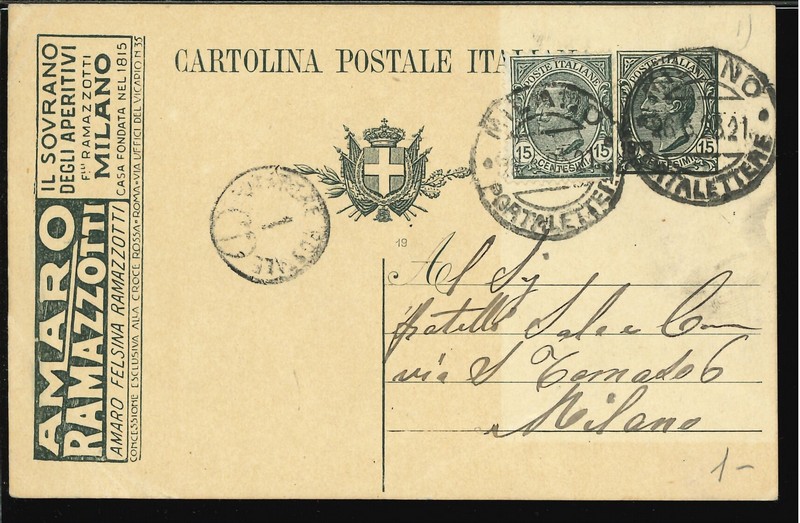 CARTOLINA POSTALE ITALIANA
IL SOVRANO
DEGLI APERITIVI
F.lli RAMAZZOTTI
MILANO
CASA FONDATA NEL 1815
AMARO
RAMAZZOTTI
AMARO FELSINA RAMAZZOTTI
CONCESSIONE ESCLUSIVA ALLA CROCE ROSSA-ROMA-VIA UFFICI DEL VICARIO N 35
POSTE ITALIANE
15 CENTESIMI 15
POSTE ITALIANE
15 CENTESIMI 15
MILANO
PORTALETTERE
MILANO
PORTALETTERE
POSTALE
1
19
Al Sig
fratelli Sala e Com
via S Tomaso 6
Milano
1)
1-